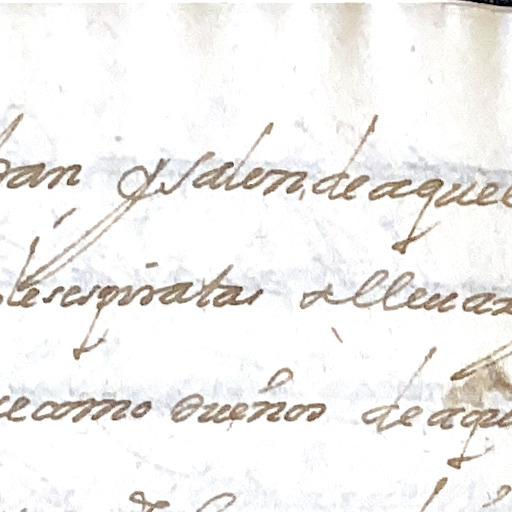 ban y salen, de aquel
de espiratas a lleuar
ce como dueños de aqu